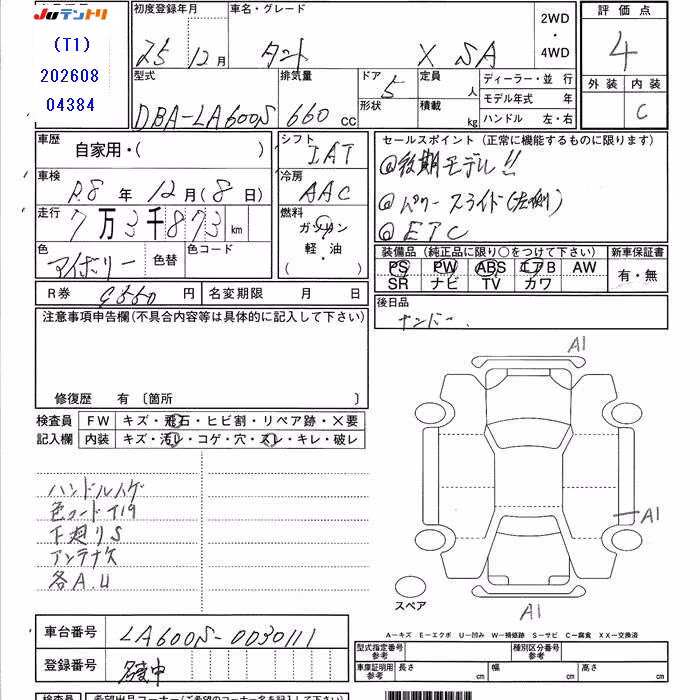 JUテントリ
(T1)
202608
04384
初度登録年月
25 12月
車名・グレード
タント X SA
2WD
・
4WD
評価点
4
外装 内装
C
型式
DBA-LA600S
排気量
660 cc
ドア
5
形状
定員
人
積載
kg
ディーラー・並 行
モデル年式 年
ハンドル 左・右
車歴
自家用・( )
シフト
IAT
車検
R8 年 12 月 (8 日)
冷房
AAC
走行
7 万 3 千 873 km
燃料
ガソリン
軽・油
( )
色
アイボリー
色替
色コード
R券
円
名変期限 月 日
セールスポイント (正常に機能するものに限ります)
@後期モデル!!
@パワースライド(左側)
@ETC
装備品 (純正品に限り○をつけて下さい)
新車保証書
PS PW ABS エアB AW
SR ナビ TV カワ
有・無
後日品
ナンバー.
注意事項申告欄(不具合内容等は具体的に記入して下さい)
修復歴 有 〔箇所 〕
検査員
記入欄
FW キズ・飛石・ヒビ割・リペア跡・×要
内装 キズ・汚レ・コゲ・穴・スレ・キレ・破レ
ハンドルハゲ
色コードT19
下廻りS
アンテナ欠
各A.U
A1
A1
A1
スペア
A-キズ E-エクボ U-凹み W-補修跡 S-サビ C-腐食 XX-交換済
車台番号
LA600S-0030111
登録番号
型式指定番号
参考
種別区分番号
参考
車庫証明用
参考
長さ cm
幅 cm
高さ cm
検査員
希望出品コーナー(ご希望のコーナー名を記入下さい)